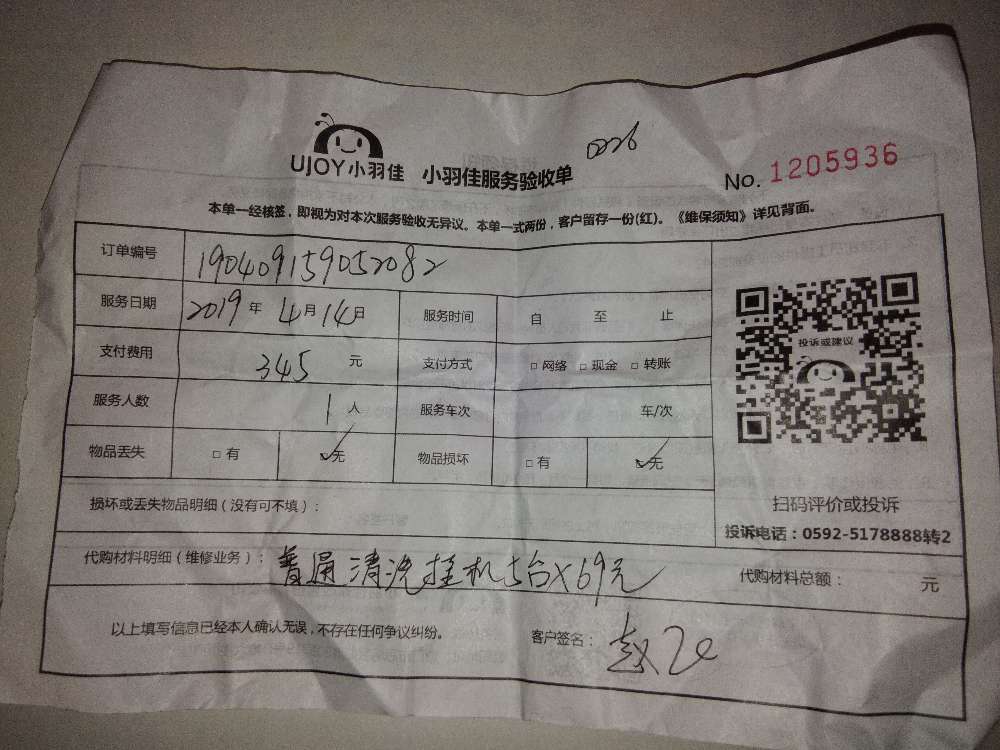 0226
UJOY小羽佳 小羽佳服务验收单 No. 1205936
本单一经核签，即视为对本次服务验收无异议。本单一式两份，客户留存一份(红)。《维保须知》详见背面。
订单编号 190409159052082
服务日期 2019年4月14日 服务时间 自 至 止
支付费用 345元 支付方式 □网络 □现金 □转账
投诉或建议
服务人数 1人 服务车次 车/次
物品丢失 □有 ☑无 物品损坏 □有 ☑无
损坏或丢失物品明细（没有可不填）：
扫码评价或投诉
投诉电话：0592-5178888转2
代购材料明细（维修业务）：普通清洗挂机5台×69元 代购材料总额： 元
以上填写信息已经本人确认无误，不存在任何争议纠纷。 客户签名：赵